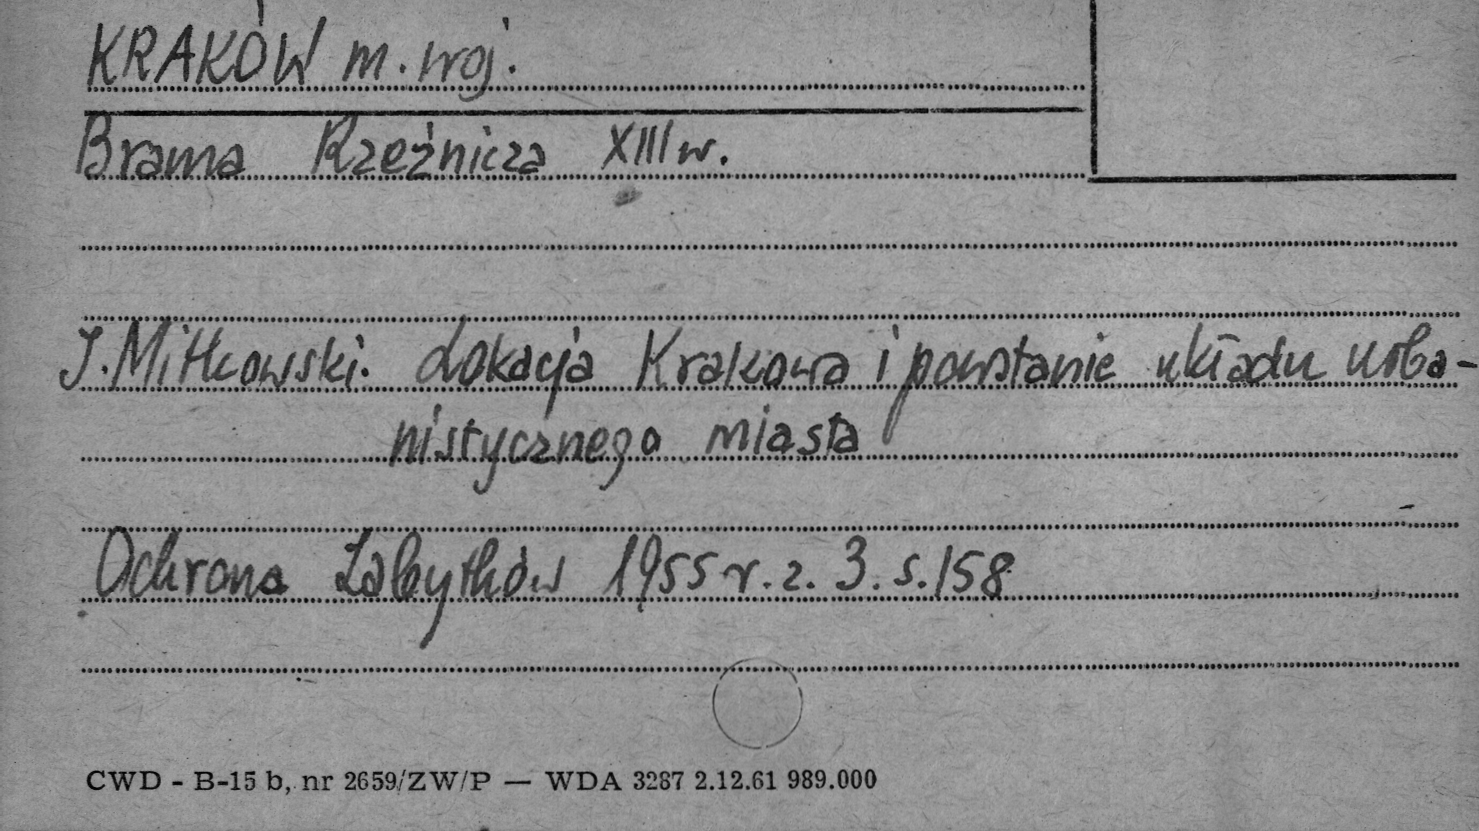 KRAKÓW m. woj.
Brama Rzeźnicza XIII w.
J. Mitkowski. Lokacja Krakowa i powstanie układu urba-
nistycznego miasta
Ochrona Zabytków 1955 r. z. 3. s. 158
CWD - B-15 b, nr 2659/ZW/P — WDA 3287 2.12.61 989.000